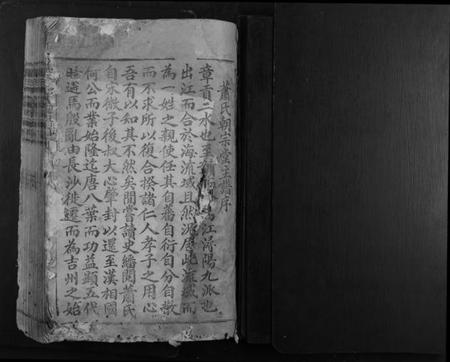 蕭氏朝宗堂主譜序
章貢二水也至 為江潯陽九派也
出江而合於海流域且然 此流域而
為一姓之親使任其自番自衍自分自散
而不求所以復合揆諸仁人孝子之用心
吾有以知其不然矣閒嘗讀史繙閱蕭氏
自宋微子後叔大心肇封以還至漢相國
何公而業始隆迄唐八葉而功益顯五代
時避馬殷亂由長沙徙遷而為吉州之始